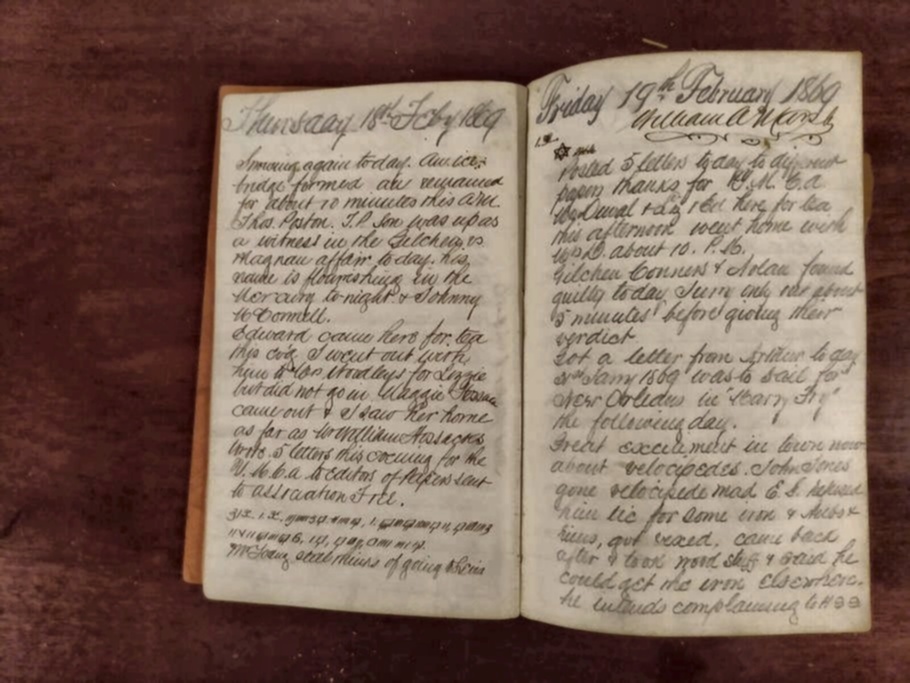 Thursday 18th Feby 1869
Snowing again today. An ice
bridge formed and remained
for about 10 minutes this a.m.
Thos. Poston. T.P. Son was up as
a witness in the Gilchen vs
affair to day. his
name is flourishing in the
Mercury to-night & Johnny
McConnell.
Edward came here for tea
this evg. I went out with
him to Mrs. Woodleys for Lizzie
but did not go in. Maggie
came out & I saw her home
as far as Mr William
Wrote 5 letters this evening for the
Y.M.C.A to Editors of Papers sent
to association Free.
seal means of going
Friday 19th February 1869
William A Marsh
Posted 5 letters today to different
papers thanks for Y.M.C.A
Duval & here for tea
this afternoon went home with
about 10. P.M.
Gilchen Conners & Nolan found
guilty today Jury only out about
5 minutes before giving their
verdict
Got a letter from Arthur to day
31st Jany 1869 was to sail for
New Orleans in "Harry Fry"
the following day.
Great excitement in town now
about velocipedes. John Jones
gone velocipede mad E.G. refused
him lic for some iron & &
hims, got vexed. came back
after & took wood stuff & said he
could get the iron elsewhere.
he intends complaining to